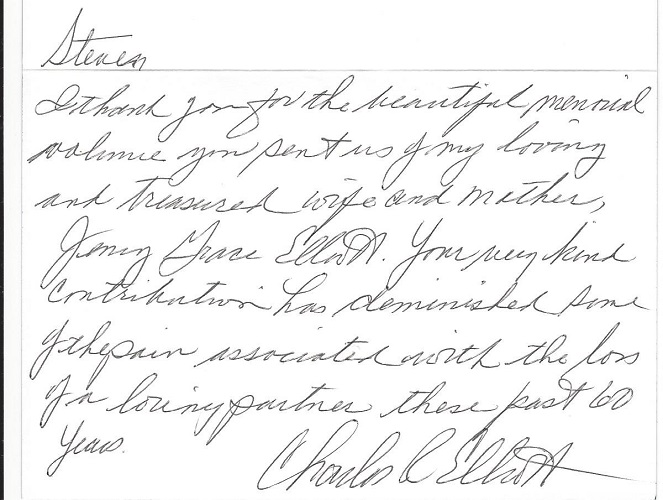 Steven
I thank you for the beautiful memorial
volume you sent us of my loving
and treasured wife and mother,
Jenny Grace Elliott. Your very kind
contribution has deminished some
of the pain associated with the loss
of a loving partner these past 60
years.
Charles C Elliott